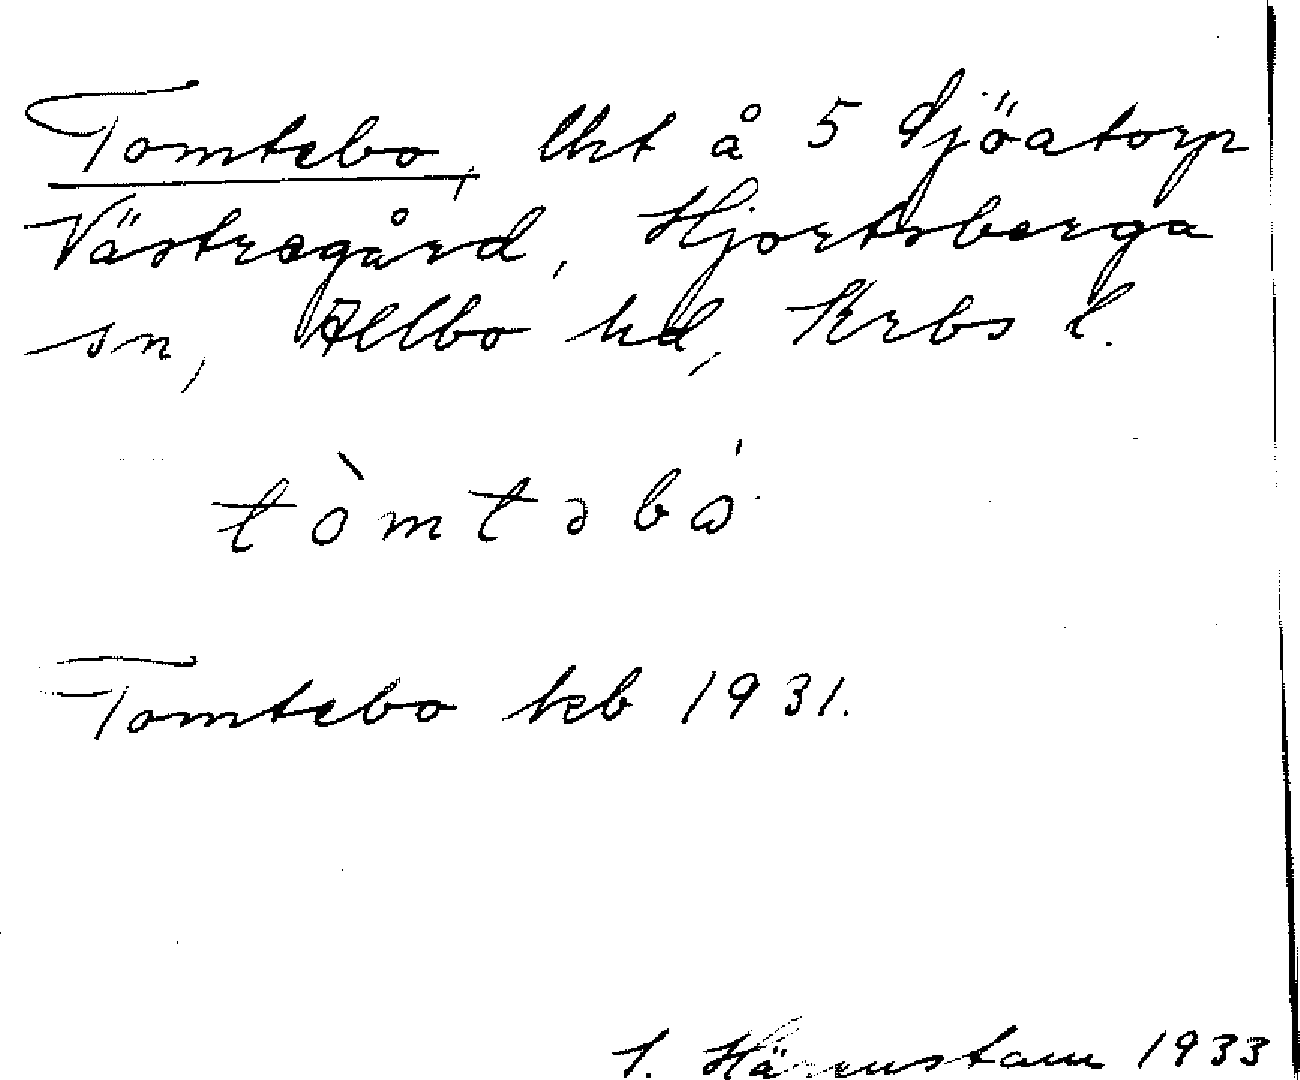 Tomtebo, lht å 5 Sjöatorp
Västregård, Hjortsberga
sn, Allbo hd, Krbs l.
tòmtəbó
Tomtebo kcb 1931.
1933